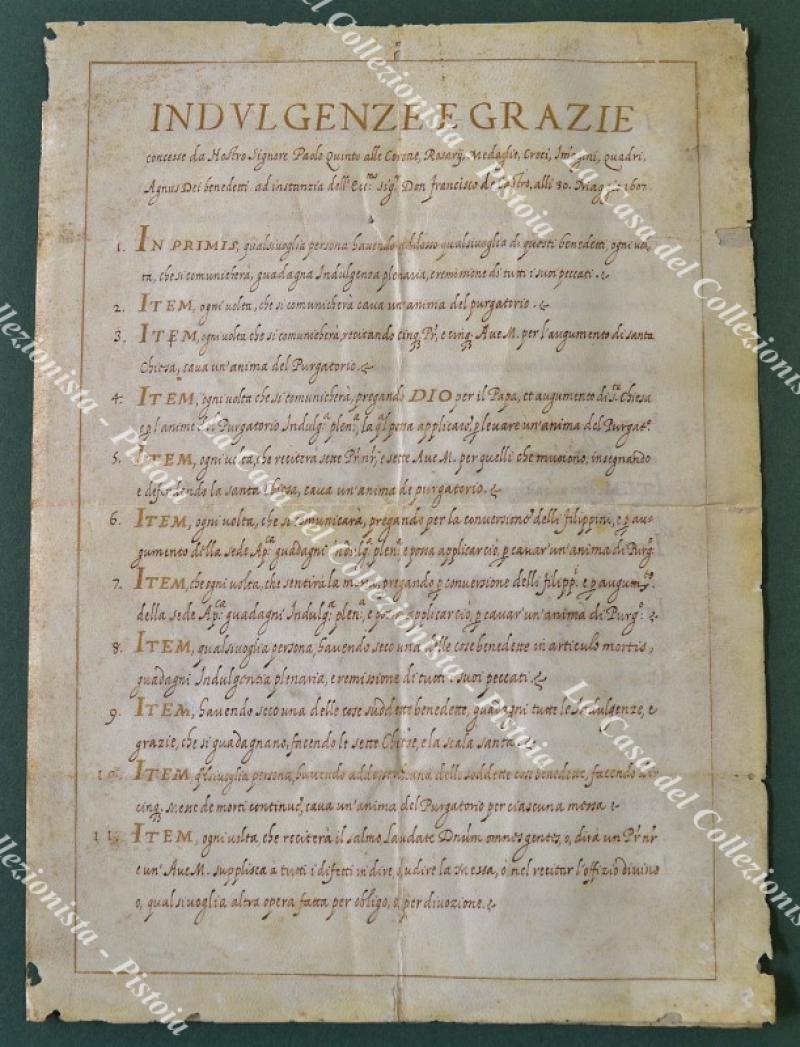 INDVLGENZE E GRAZIE
concesse da Nostro Signore Paolo Quinto alle Corone, Rosarij, Medaglie, Croci, Imagini, Quadri,
Agnus Dei benedetti ad instanzia dell'Ecc.mo Sig.r Don francisco de Castro, alli 30. Maggio 1607.
1. IN PRIMIS, qualsivoglia persona havendo addosso qualsivoglia di questi benedetti, ogni vol,
ta, che si comunicherà, guadagna Indulgenza plenaria, e remissione di tutti i suoi peccati.
2. ITEM, ogni volta, che si comunicherà cava un'anima del purgatorio.
3. ITEM, ogni volta che si comunicherà, recitando cinq; Pr̃, e cinq; Aue M. per l'augumento di santa
Chiesa, cava un'anima del Purgatorio.
4. ITEM, ogni volta che si comunicherà, pregando DIO per il Papa, et augumento di S.ta Chiesa
e p l'anime del Purgatorio Indulg.a plen.a, la q.l possa applicare p levare un'anima del Purgat.o
5. ITEM, ogni volta, che reciterà sette Pr̃ nr̃, e sette Aue M. per quelli che muoiono, insegnando
e defendendo la santa Chiesa, cava un'anima de purgatorio.
6. ITEM, ogni volta, che si comunicarà, pregando per la conversione delli filippini, e p au-
gumento della Sede Ap.ca guadagni Indulg.a plen.a e possa applicar ciò, p cavar un'anima di Purg.o
7. ITEM, che ogni volta, che sentirà la messa, pregando p conversione delli filipp.i e p augum.to
della sede Ap.ca guadagni Indulg.a plen.a, e possa applicar ciò, p cavar un'anima di Purg.o
8. ITEM, qualsivoglia persona, havendo seco una delle cose benedette in articulo mortis,
guadagni Indulgentia plenaria, e remissione di tutti i suoi peccati.
9. ITEM, havendo seco una delle cose suddette benedette, guadagni tutte le Indulgenze, e
grazie, che si guadagnano, facendo le sette Chiese, e la scala santa.
10. ITEM, q.lsivoglia persona, havendo addosso una delle suddette cose benedette, facendo dir
cinq; messe de morti continue, cava un'anima del Purgatorio per ciascuna messa
11. ITEM, ogni volta, che reciterà il salmo Laudate Dnũm omnes gentes, o, dirà un Pr̃ nr̃
e un' Aue M. supplisca a tutti i difetti in dire, ò udire la Messa, ò nel recitar l'offizio divino
o, qualsivoglia altra opera fatta per obligo, ò per divozione.
La Casa del Collezionista - Pistoia